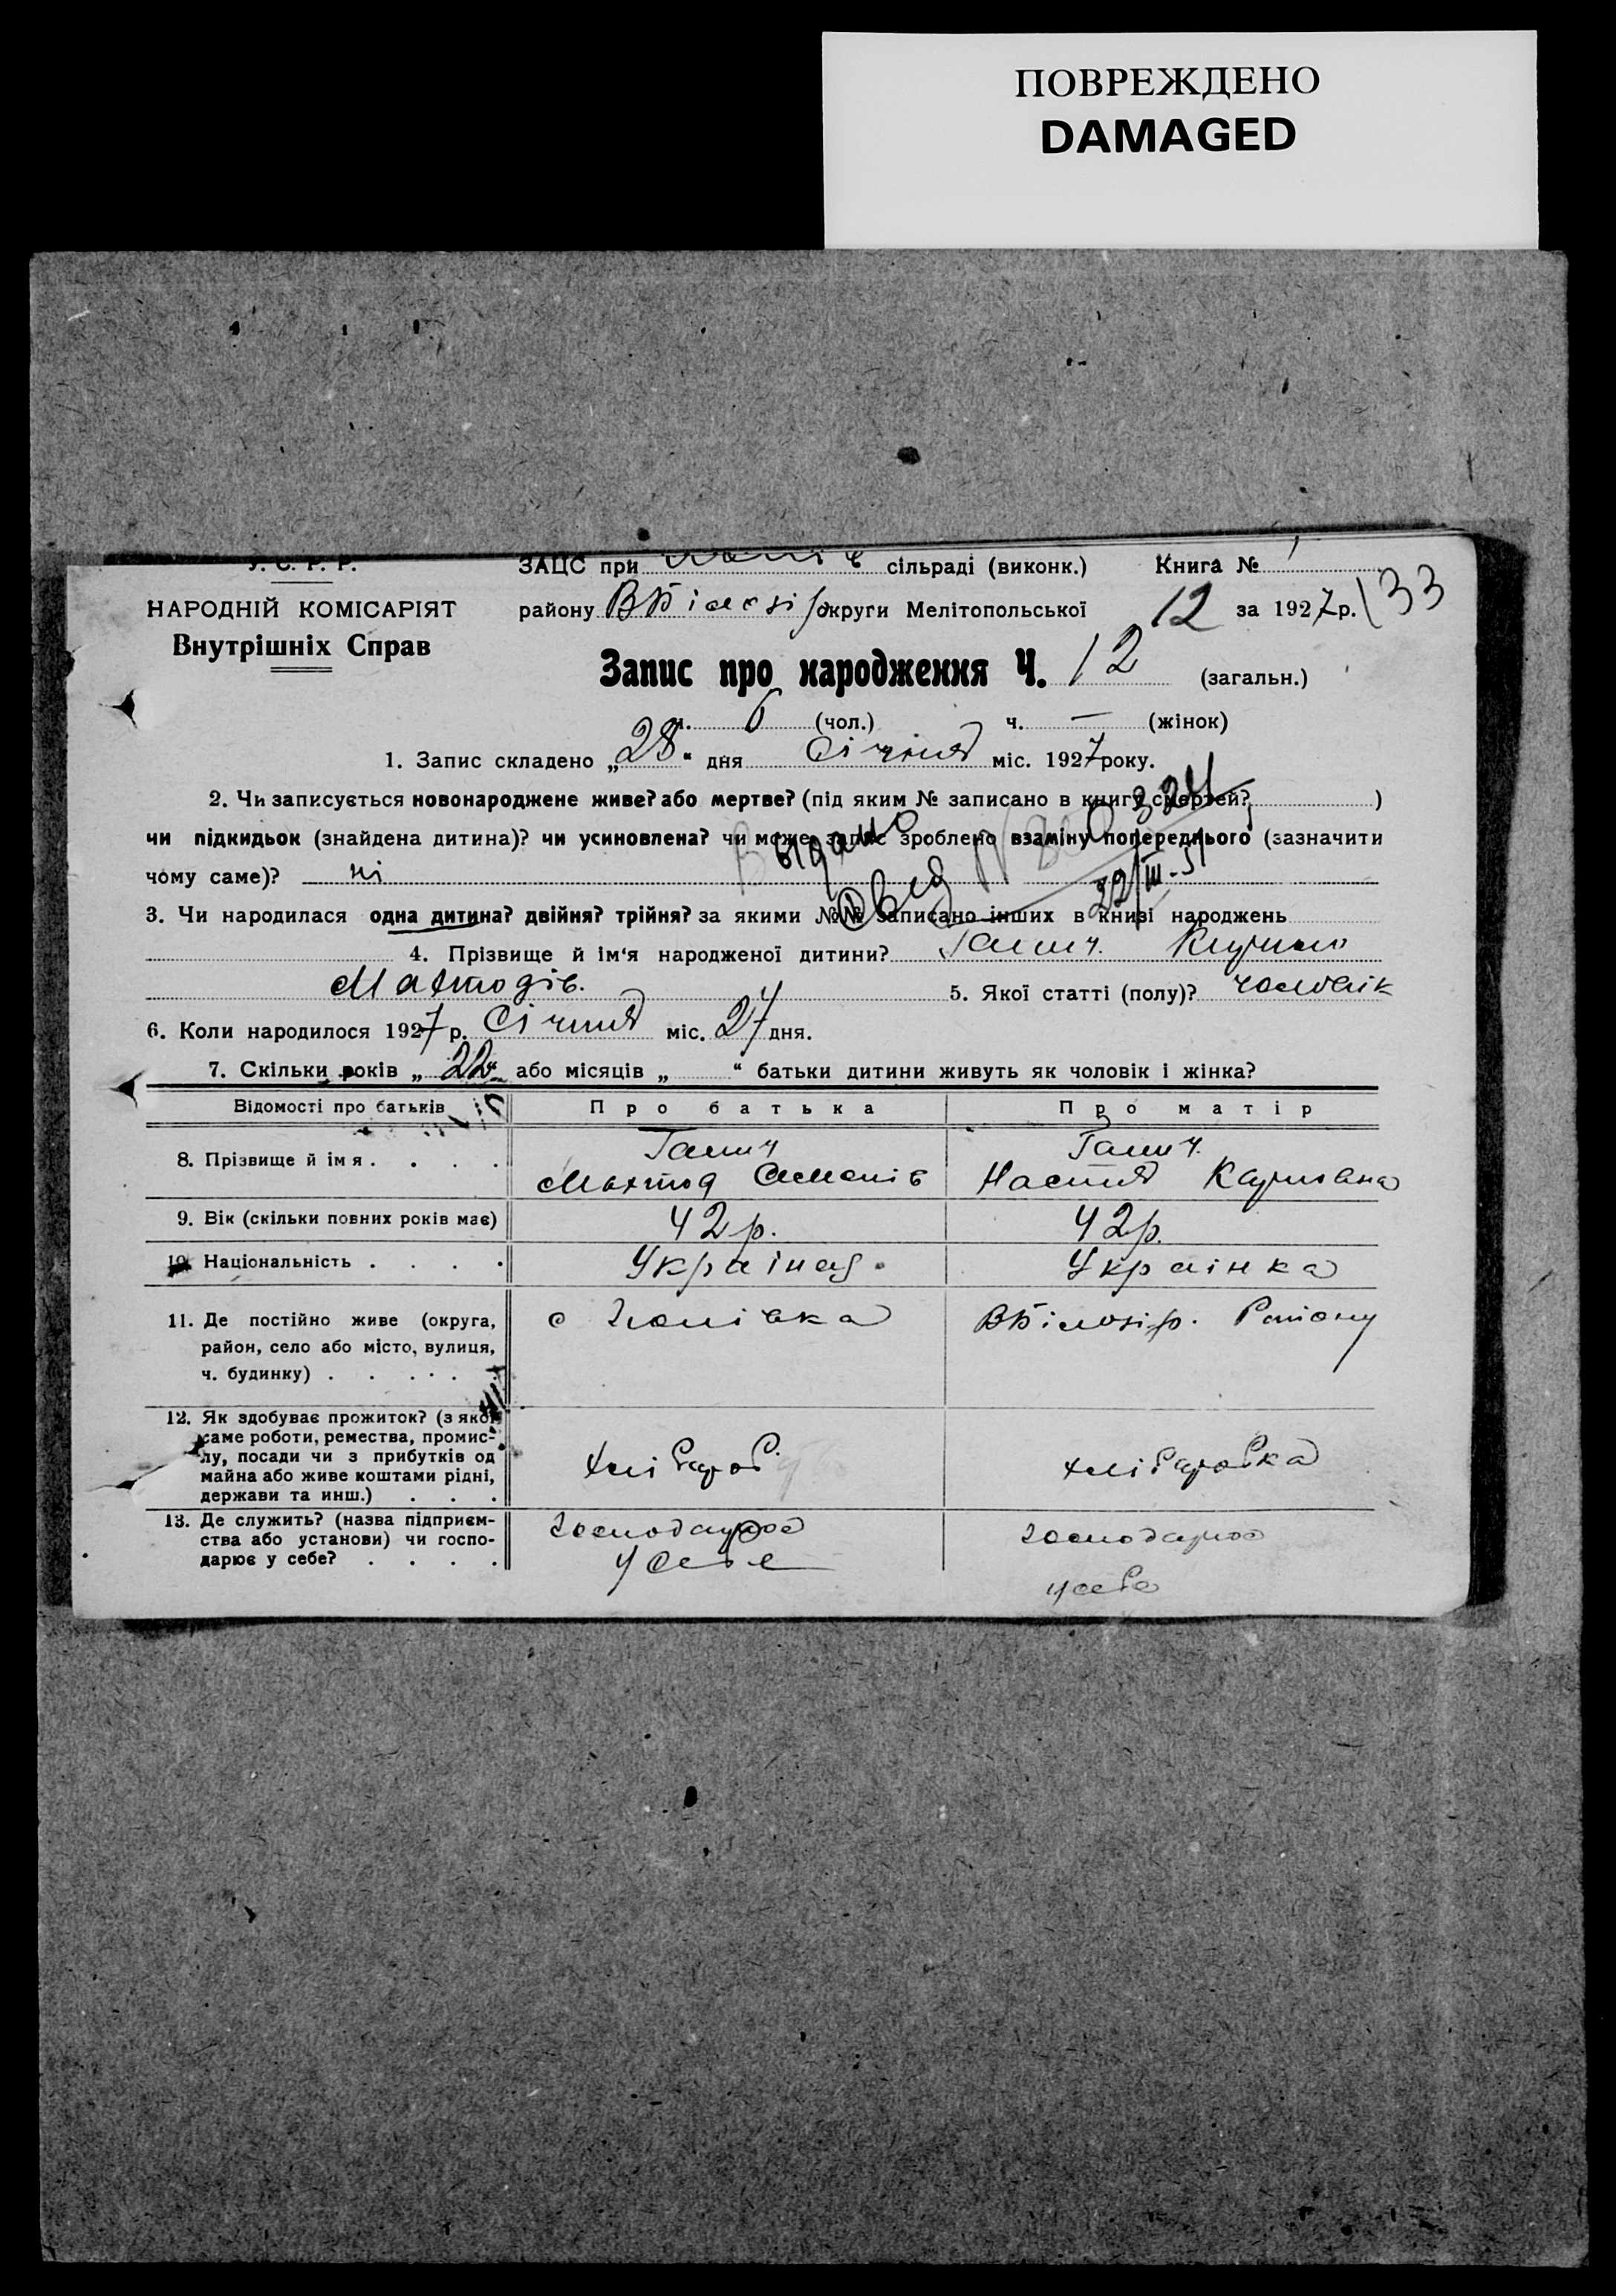 ПОВРЕЖДЕНО
DAMAGED
У. С. Р. Р.
НАРОДНІЙ КОМІСАРІЯТ
Внутрішніх Справ
ЗАЦС при сільраді (виконк.) Книга № 1
району ВБілозір округи Мелітопольської 12 за 1927 р. 33
Запис про народження Ч. 12 (загальн.)
ч. 6 (чол.) ч. — (жінок)
1. Запис складено „28“ дня Січня міс. 1927 року.
2. Чи записується новонароджене живе? або мертве? (під яким № записано в книгу смертей? )
чи підкидьок (знайдена дитина)? чи усиновлена? чи може запис зроблено взаміну попереднього (зазначити
чому саме)? ні
Выдано
324
22/III-51
3. Чи народилася одна дитина? двійня? трійня? за якими №№ записано інших в книзі народжень
4. Прізвище й ім'я народженої дитини? Галич
Махтодів. 5. Якої статті (полу)? чоловік
6. Коли народилося 1927 р. Січня міс. 27 дня.
7. Скільки років „22“ або місяців „ “ батьки дитини живуть як чоловік і жінка?
Відомості про батьків Про батька Про матір
8. Прізвище й імя . . . . Галич Галич
Махтод Семенів Настя Карповна
9. Вік (скільки повних років має) 42 р. 42 р.
10. Національність . . . . Українец. Українка
11. Де постійно живе (округа, район, село або місто, вулиця, ч. будинку) . . . . . с ВБілозір. Району
12. Як здобуває прожиток? (з якої саме роботи, ремества, промислу, посади чи з прибутків од майна або живе коштами рідні, держави та инш.) . . . хлібороб хліборобка
13. Де служить? (назва підприємства або установи) чи господарює у себе? . . . . господарює господарює
у себе у себе